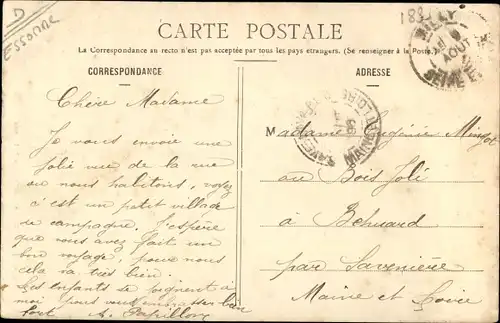 D
Essonne
188
CARTE POSTALE
La Correspondance au recto n'est pas acceptée par tous les pays étrangers. (Se renseigner à la Poste.)
CORRESPONDANCE
ADRESSE
AOUT
SEINE ET
MAINE
LOIRE
Chère Madame
Je vous envoie une
jolie vue de la rue
ou nous habitons, voyez
c'est un petit village
de campagne. J'espère
que vous avez fait un
bon voyage, pour nous
cela va très bien.
Les enfants se joignent à
moi pour vous embrasser bien
fort A. Papillon
Madame Eugénier
au Bois Joli
à Béhuard
par Savenière
Maine et Loire